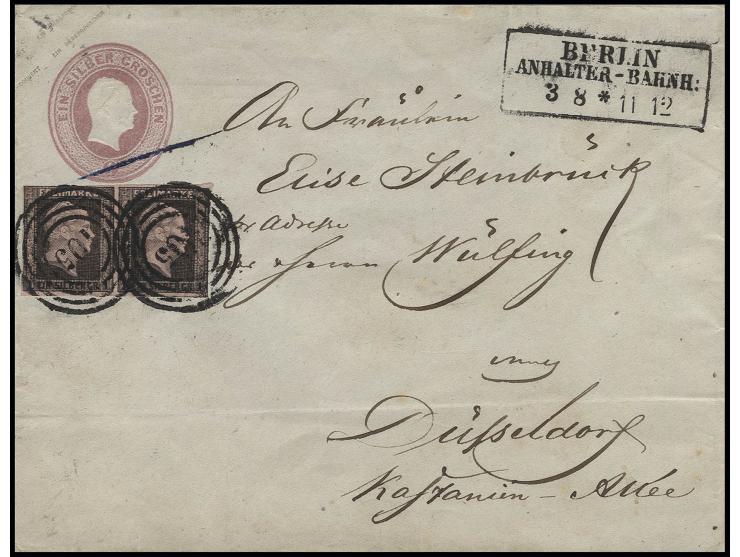 EIN SILBER GROSCHEN
BERLIN
ANHALTER-BAHNH:
3 8 * 11 12
An Fräulein
Elise Steinbrück
Adresse
Herrn Wülfing
FREIMARKE
FREIMARKE
EIN SILBERGR.
EIN SILBERGR.
Düsseldorf
Kastanien-Allee